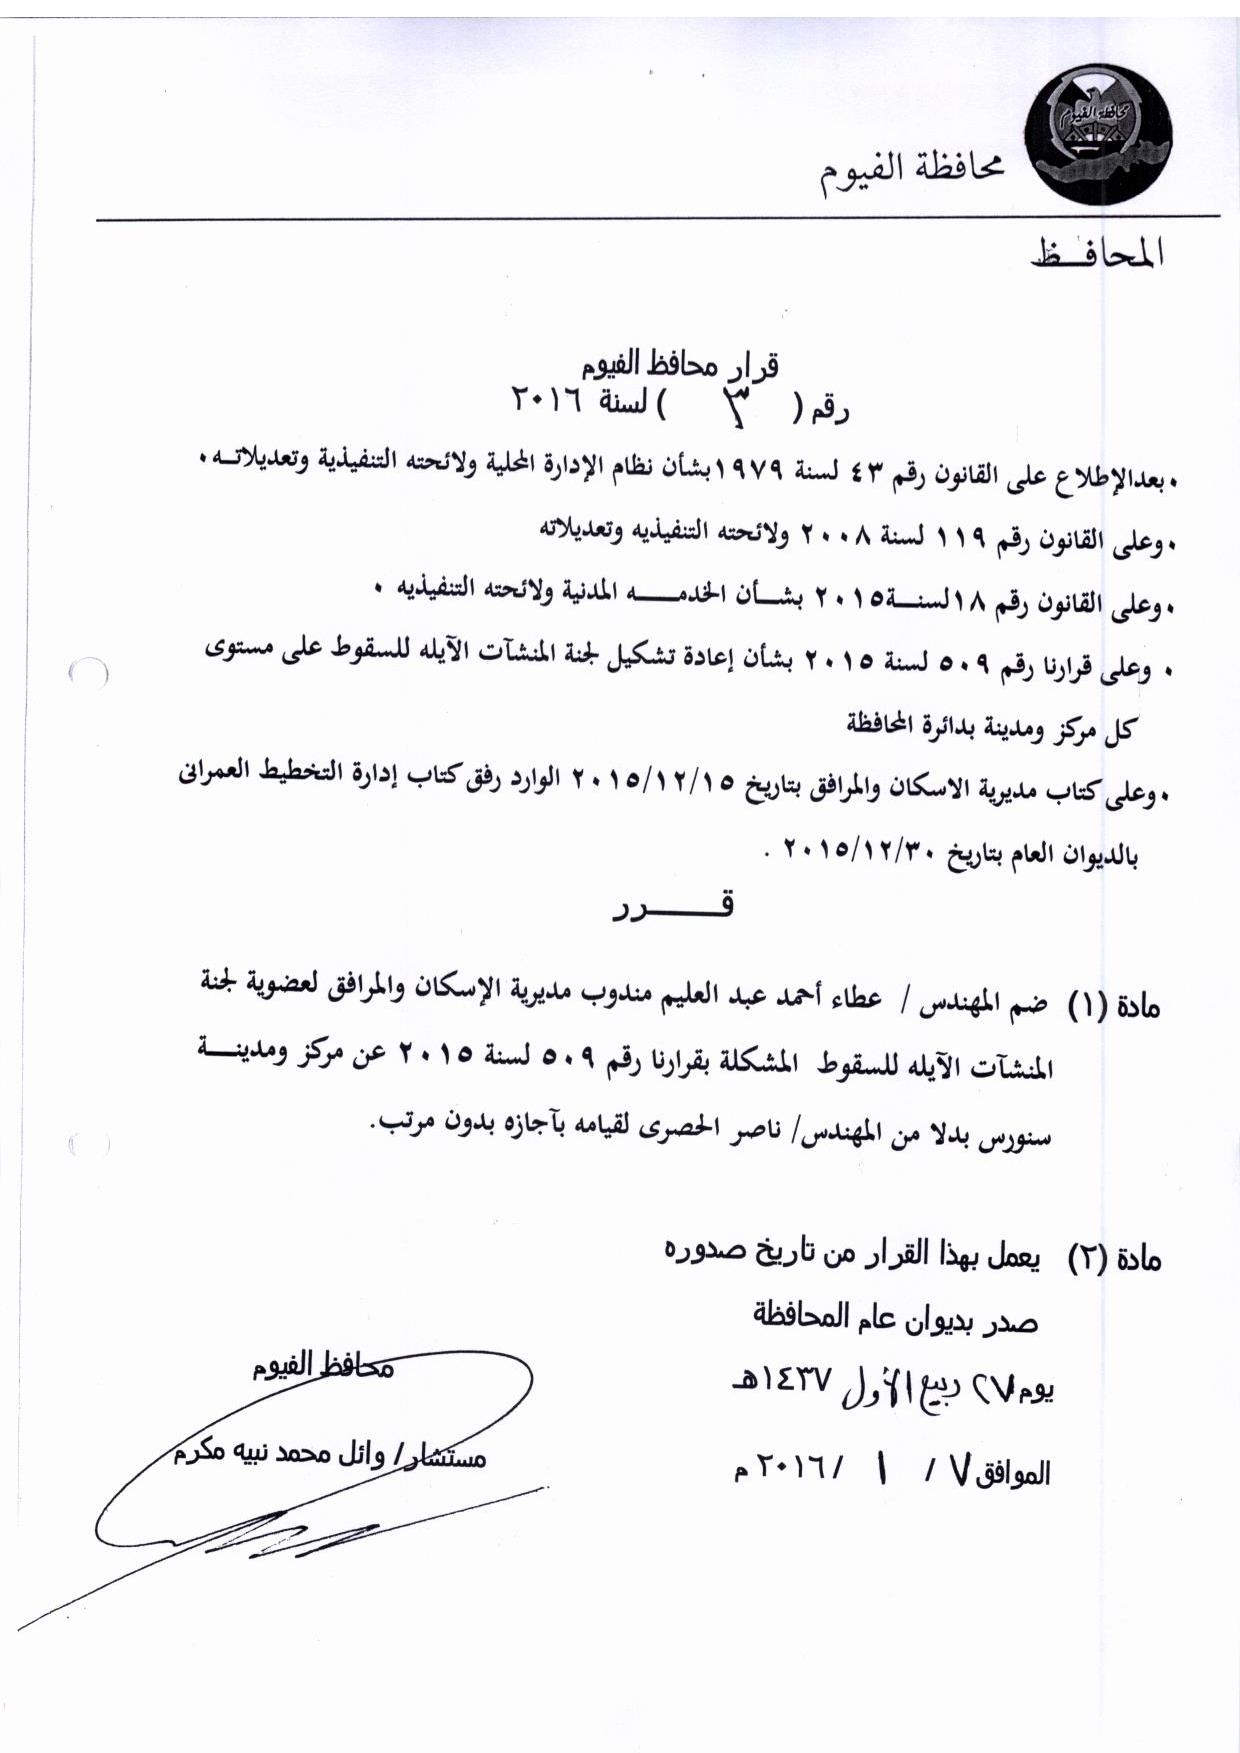 محافظة الفيوم
محافظة الفيوم
المحافـــظ
قرار محافظ الفيوم
رقم ( ٣ ) لسنة ٢٠١٦
• بعدالإطلاع على القانون رقم ٤٣ لسنة ١٩٧٩بشأن نظام الإدارة المحلية ولائحته التنفيذية وتعديلاتــه •
• وعلى القانون رقم ١١٩ لسنة ٢٠٠٨ ولائحته التنفيذيه وتعديلاته
• وعلى القانون رقم ١٨لسنـــة٢٠١٥ بشـــأن الخدمـــــه المدنية ولائحته التنفيذيه •
• وعلى قرارنا رقم ٥٠٩ لسنة ٢٠١٥ بشأن إعادة تشكيل لجنة المنشآت الآيله للسقوط على مستوى
كل مركز ومدينة بدائرة المحافظة
• وعلى كتاب مديرية الاسكان والمرافق بتاريخ ٢٠١٥/١٢/١٥ الوارد رفق كتاب إدارة التخطيط العمرانى
بالديوان العام بتاريخ ٢٠١٥/١٢/٣٠ .
قـــــــرر
مادة (١) ضم المهندس / عطاء أحمد عبد العليم مندوب مديرية الإسكان والمرافق لعضوية لجنة
المنشآت الآيله للسقوط المشكلة بقرارنا رقم ٥٠٩ لسنة ٢٠١٥ عن مركز ومدينــــة
سنورس بدلا من المهندس/ ناصر الحصرى لقيامه بآجازه بدون مرتب.
مادة (٢) يعمل بهذا القرار من تاريخ صدوره
صدر بديوان عام المحافظة
يوم ٢٧ ربيع الأول ١٤٣٧هـ
الموافق ٧ / ١ / ٢٠١٦ م
محافظ الفيوم
مستشار/ وائل محمد نبيه مكرم